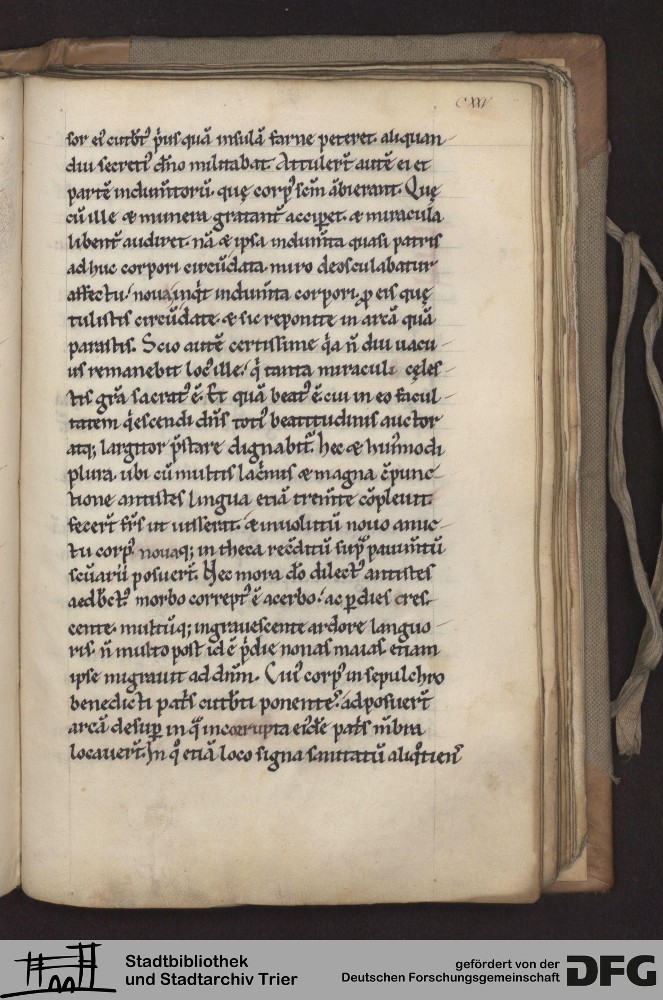 CXXV
sor ei᷒ cutbt᷒ p̍us quā insulā farne peteret. aliquan-
diu secreti᷒ dño militabat. Attuler̄t autē ei et
partē indum̄torū. quę corp᷒ sc̄m ābierant. Quę
cū ille & munera gratant᷒ acciꝑet. & miracula
libent᷒ audiret. nā & ipsa indum̄ta quasi patris
adhuc corpori circūdata. miro deosculabatur
affectu. noua inq̍t indum̄ta corpori. ꝓ eis quę
tulistis circūdate. & sic reponite in arcā quā
parastis. Scio autē certissime q̍a n̄ diu uacu-
us remanebit loc᷒ ille. q̍ tanta miraculi cęles-
tis gr̄a sacrat᷒ ē. Et quā beat᷒ ē cui in eo facul-
tatem q̍escendi dn̄s toti᷒ beatitudinis auctor
atq; largitor p̄stare dignabit᷒. hec & hui᷒modi
plura. ubi cū multis lac̍mis & magna c̄punc-
tione antistes lingua etiā trem̄te cōpleuit.
fecer̄t fr̄s ut iusserat. & inuolutū nouo amic-
tu corp᷒ nouaq; in theca recōditū sup̄ pauim̄tū
sc̄uarii posuer̄t. Nec mora dō dilect᷒ antistes
aedb̄ct᷒ morbo corrept᷒ ē acerbo. ac ꝑ dies cres-
cente. multūq; ingrauescente ardore languo-
ris. n̄ multo post id ē p̍die nonas maias. etiam
ipse migrauit ad dn̄m. Cui᷒ corp᷒ in sepulchro
benedicti pat̄s cutb̄ti ponentes. adposuer̄t
arcā desuꝑ in q̄ incorrupta ei᷒dē pat̄s m̄bra
locauer̄t. In q̊ etiā loco signa sanitatū aliq̊tiens
Stadtbibliothek
und Stadtarchiv Trier
gefördert von der
Deutschen Forschungsgemeinschaft
DFG